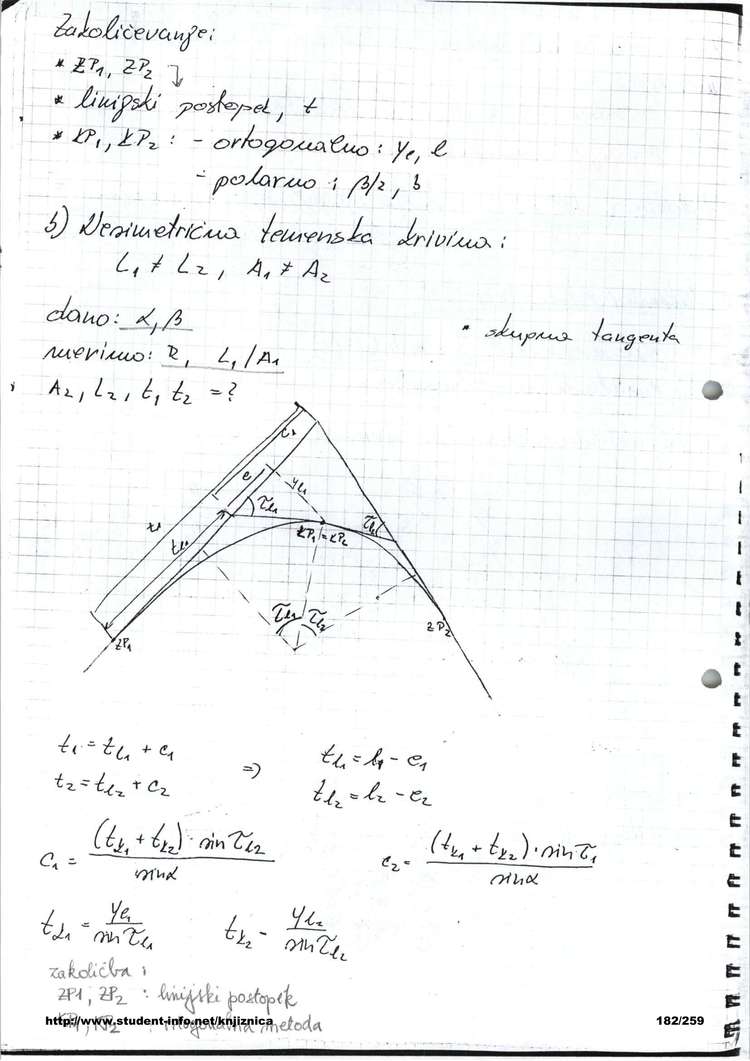 Zakoličevanje:
* ZP1, ZP2
* linijski postopek, t
* KP1, KP2 : - ortogonalno : yl, l
- polarno : β/2, s
b) Nesimetrična temenska krivina :
L1 ≠ L2, A1 ≠ A2
dano: α, β
merimo: R, L1/A1
* skupna tangenta
A2, L2, t1 t2 = ?
e
yl1
τl1
τl2
KP1 = KP2
τl1 τl2
ZP1
ZP2
t1 = tl1 + c1 => tl1 = l1 - e1
t2 = tl2 + c2 tl2 = l2 - e2
c1 = (tk1 + tk2) · sin τl2 / sin α c2 = (tk1 + tk2) · sin τ1 / sin α
tk1 = yl1 / sin τl1 tk2 - yl2 / sin τl2
zakoličba :
ZP1, ZP2 : linijski postopek
metoda
http://www.student-info.net/knjiznica 182/259